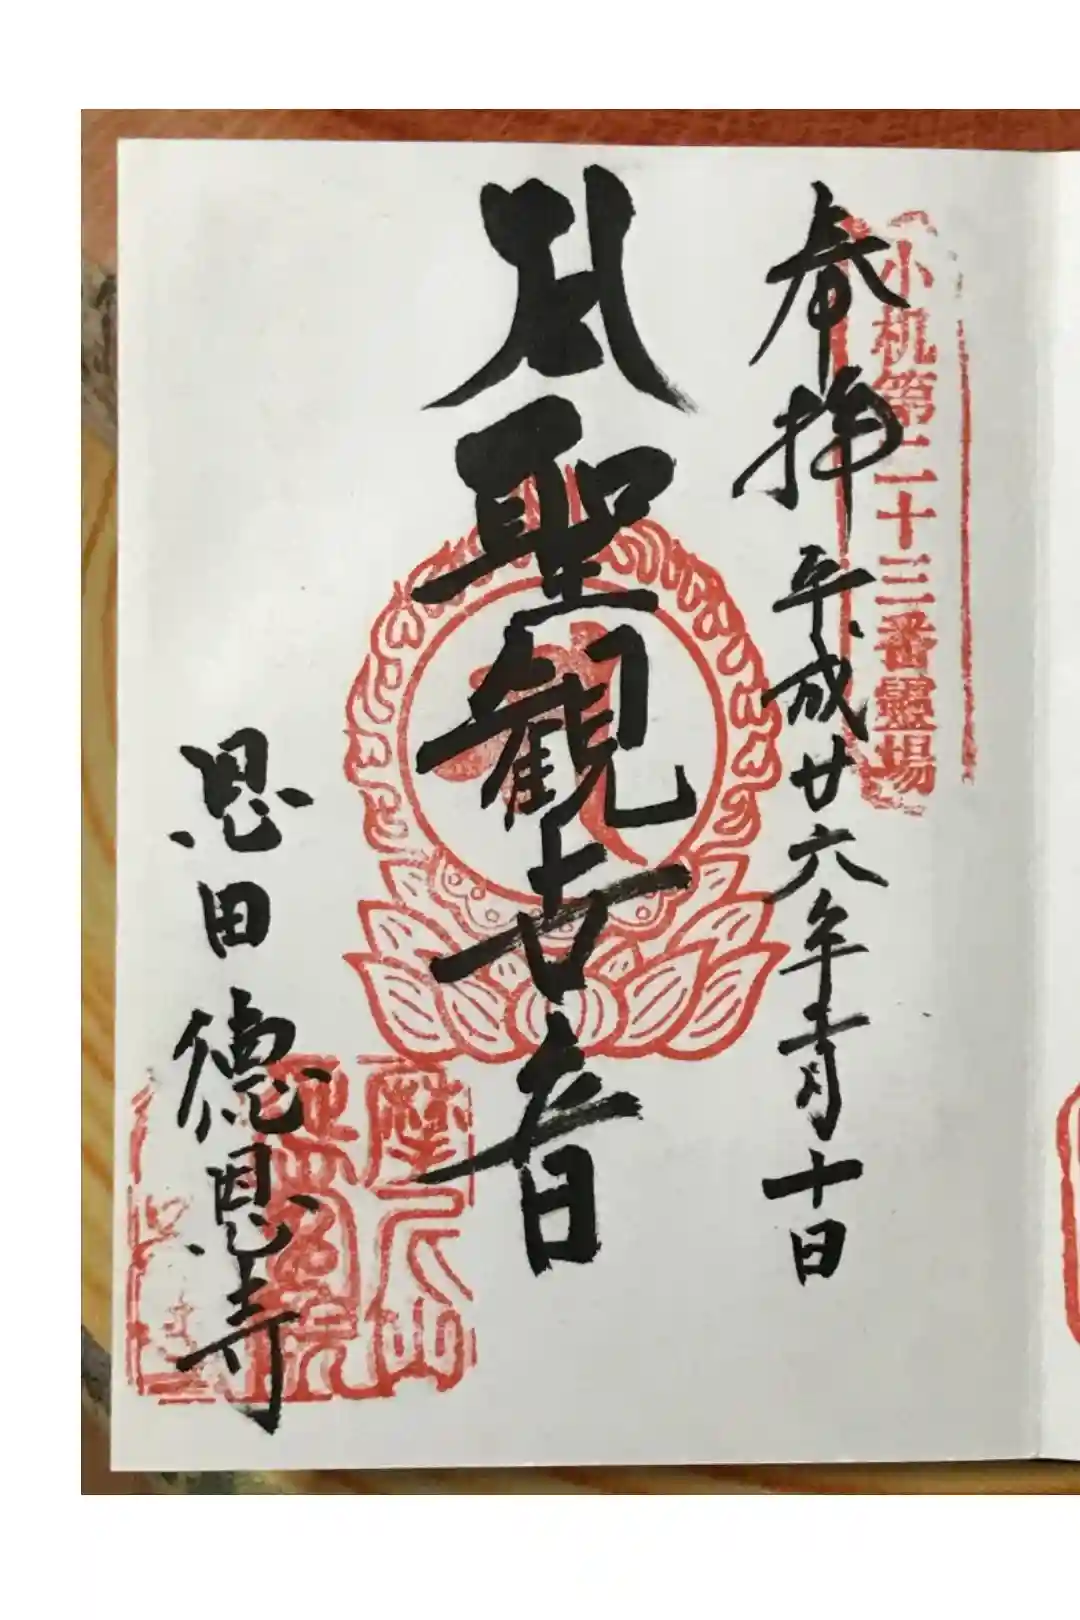 小机第二十三番靈場
奉拝 平成廿六年月十日
聖観世音
恩田 徳恩寺
摩尼山